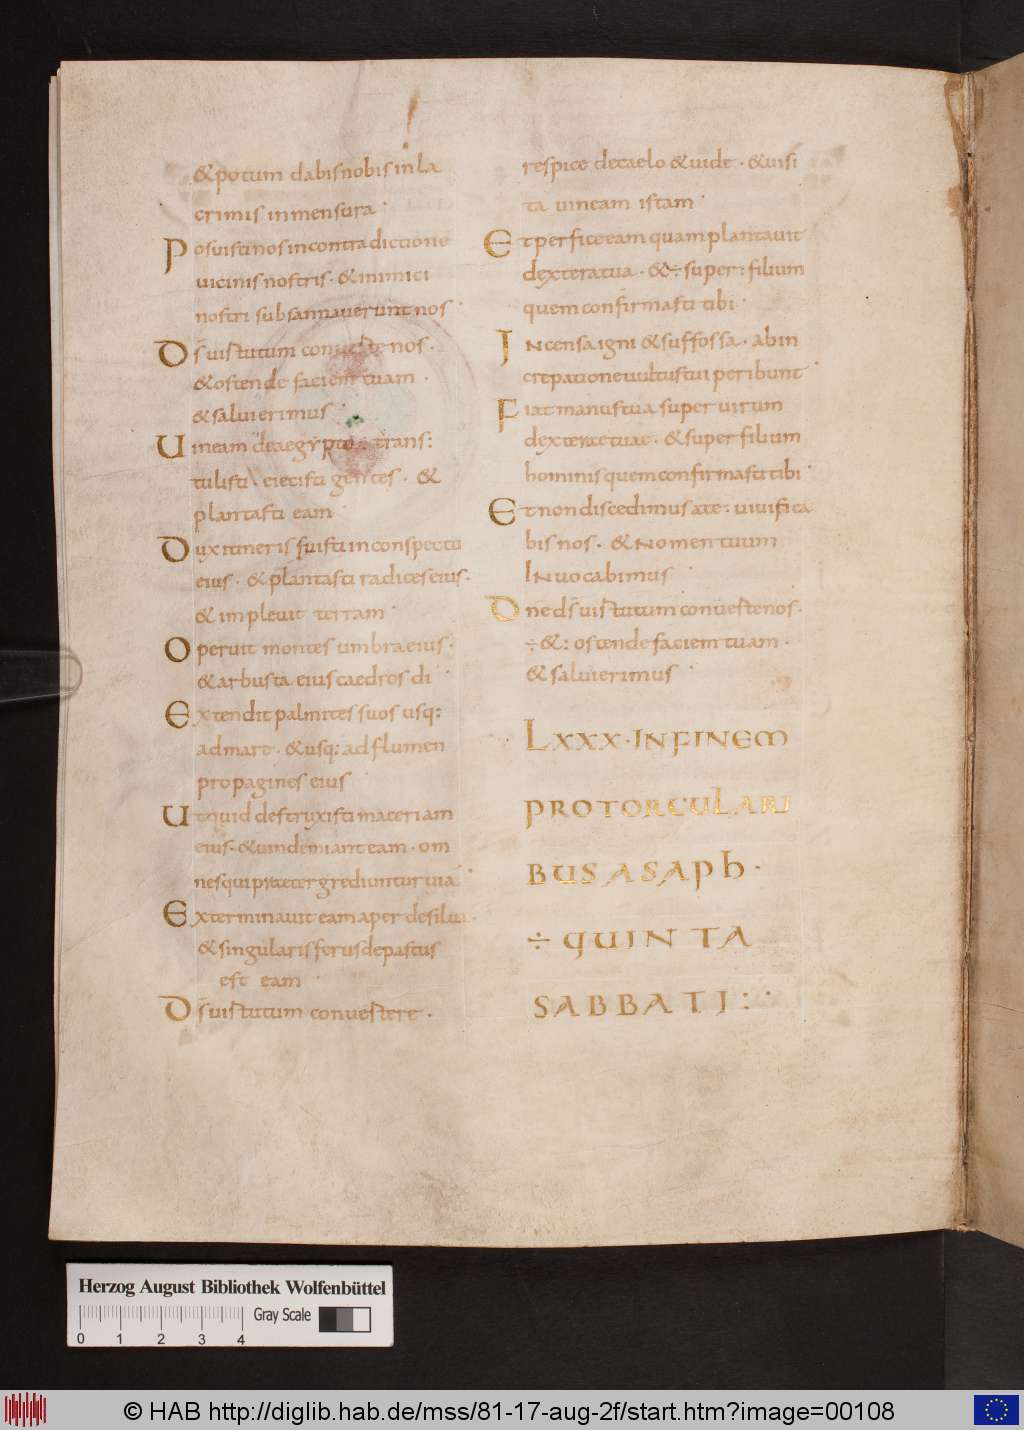 &potum dabis nobis in la
crimis in mensura
Posuisti nos in contradictione
uicinis nostris · & inimici
nostri subsannauerunt nos ·
Ds̄ uistutum conueste nos ·
& ostende faciem tuam ·
& salui erimus
Uineam deaegypto trans:
tulisti eiecisti gentes · &
plantasti eam
Dux itineris fuisti in conspectu
eius · & plantasti radices eius ·
& impleuit terram
Operuit montes umbra eius :
& arbusta eius caedros di
Extendit palmites suos usq:
ad mare · & usq: ad flumen
propagines eius
Utquid destruxisti maceriam
eius · & uindemiant eam · om
nes qui praetergrediuntur uia
Exterminauit eam aper de silua ·
& singularis ferus depastus
est eam
Ds̄ uistutum conuestere ·
respice de caelo & uide · & uisi
ta uineam istam
Et perfice eam quam plantauit
dextera tua · &÷super: filium
quem confirmasti tibi
Incensa igni & suffossa · ab in
crepatione uultus tui peribunt
Fiat manus tua super uirum
dexterae tuae · & super filium
hominis quem confirmasti tibi
Et non discedimus a te : uiuifica
bis nos · & nomen tuum
Inuocabimus
Dn̄e ds̄ uistutum conueste nos ·
÷&: ostende faciem tuam ·
& salui erimus
LXXX · IN FINEM
PRO TORCULARI
BUS ASAPH ·
÷ QUINTA
SABBATI :·
Herzog August Bibliothek Wolfenbüttel
Gray Scale
0 1 2 3 4
© HAB http://diglib.hab.de/mss/81-17-aug-2f/start.htm?image=00108